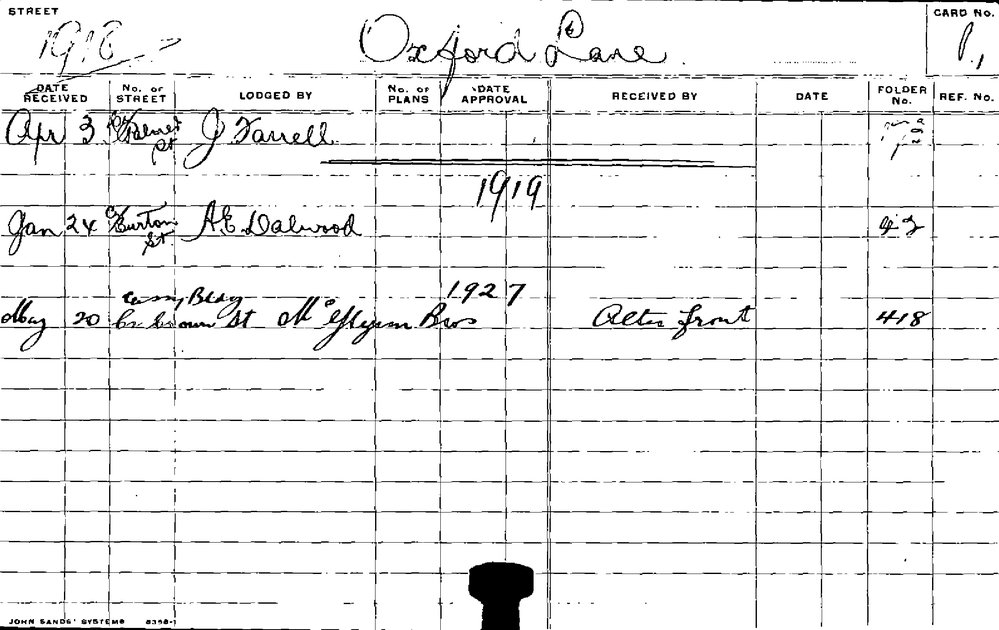 STREET
1918 Oxford Lane
CARD NO.
1,
DATE RECEIVED No. OF STREET LODGED BY No. OF PLANS DATE APPROVAL RECEIVED BY DATE FOLDER No. REF. No.
Apr 3 Palmer St J Farrell
1919
Jan 24 c/ Burton St A.E. Dalwood
1927
Bldg
May 20 St Bros Alter front 418
JOHN SANDS' SYSTEMS 8398-1